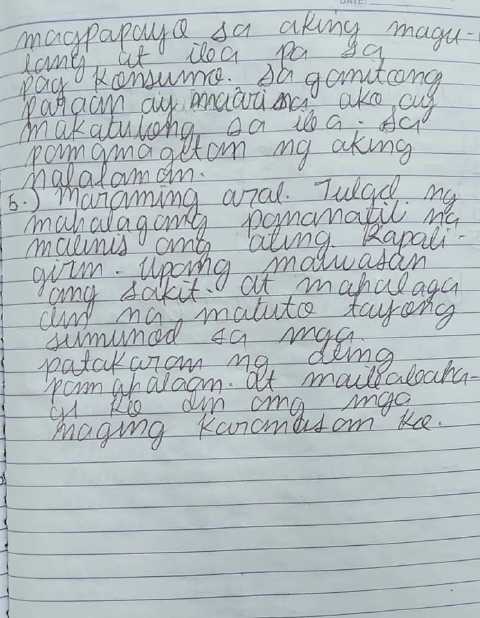 magpapayo sa aking magu-
lang at iba pa sa
pag konsumo. Sa ganitong
paraan ay maari na ako ay
makatulong sa iba. sa
pamamagitan ng aking
nalalaman.
5.) Maraming aral. Tulad ng
mahalagang panatil na
malinis ang ating kapali-
girin. upang maiwasan
ang sakit. at mahalaga
din na matuto tayong
sumunod sa mga
patakaran ng ating
pamahalaan. at maibabaha-
gi ko din ang mga
maging karanasan ko.